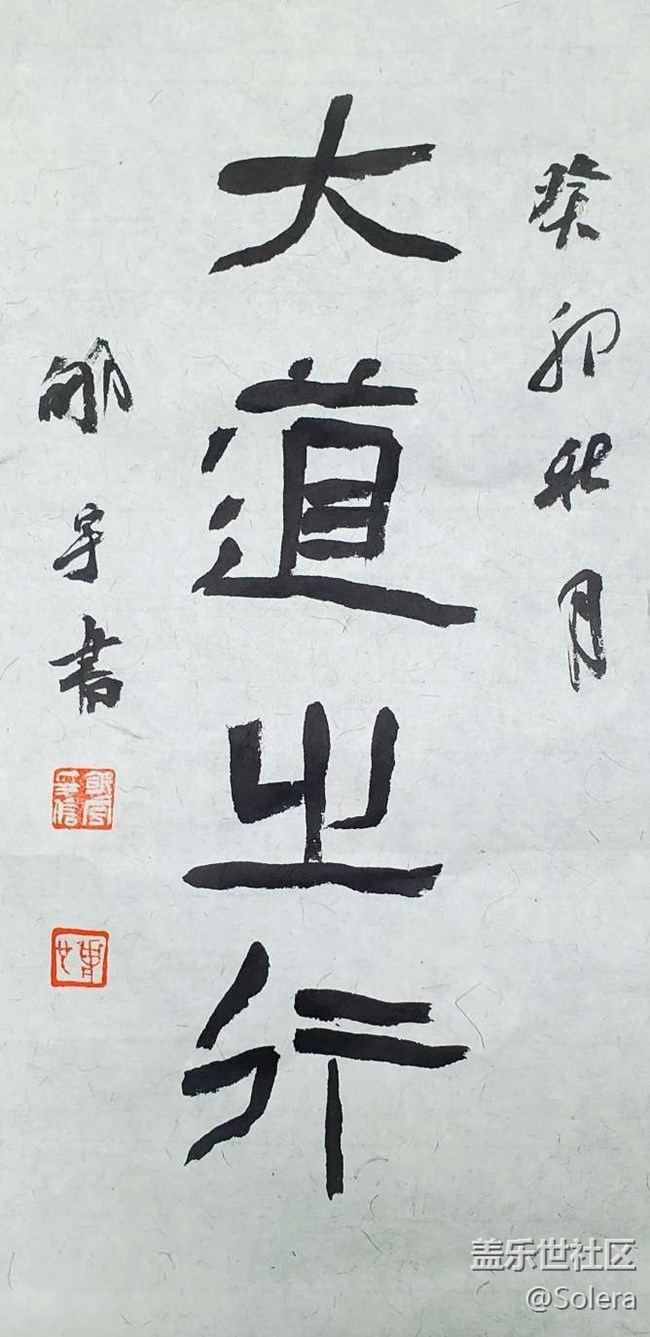 癸卯秋月
大道之行
宇書
盖乐世社区
@Solera